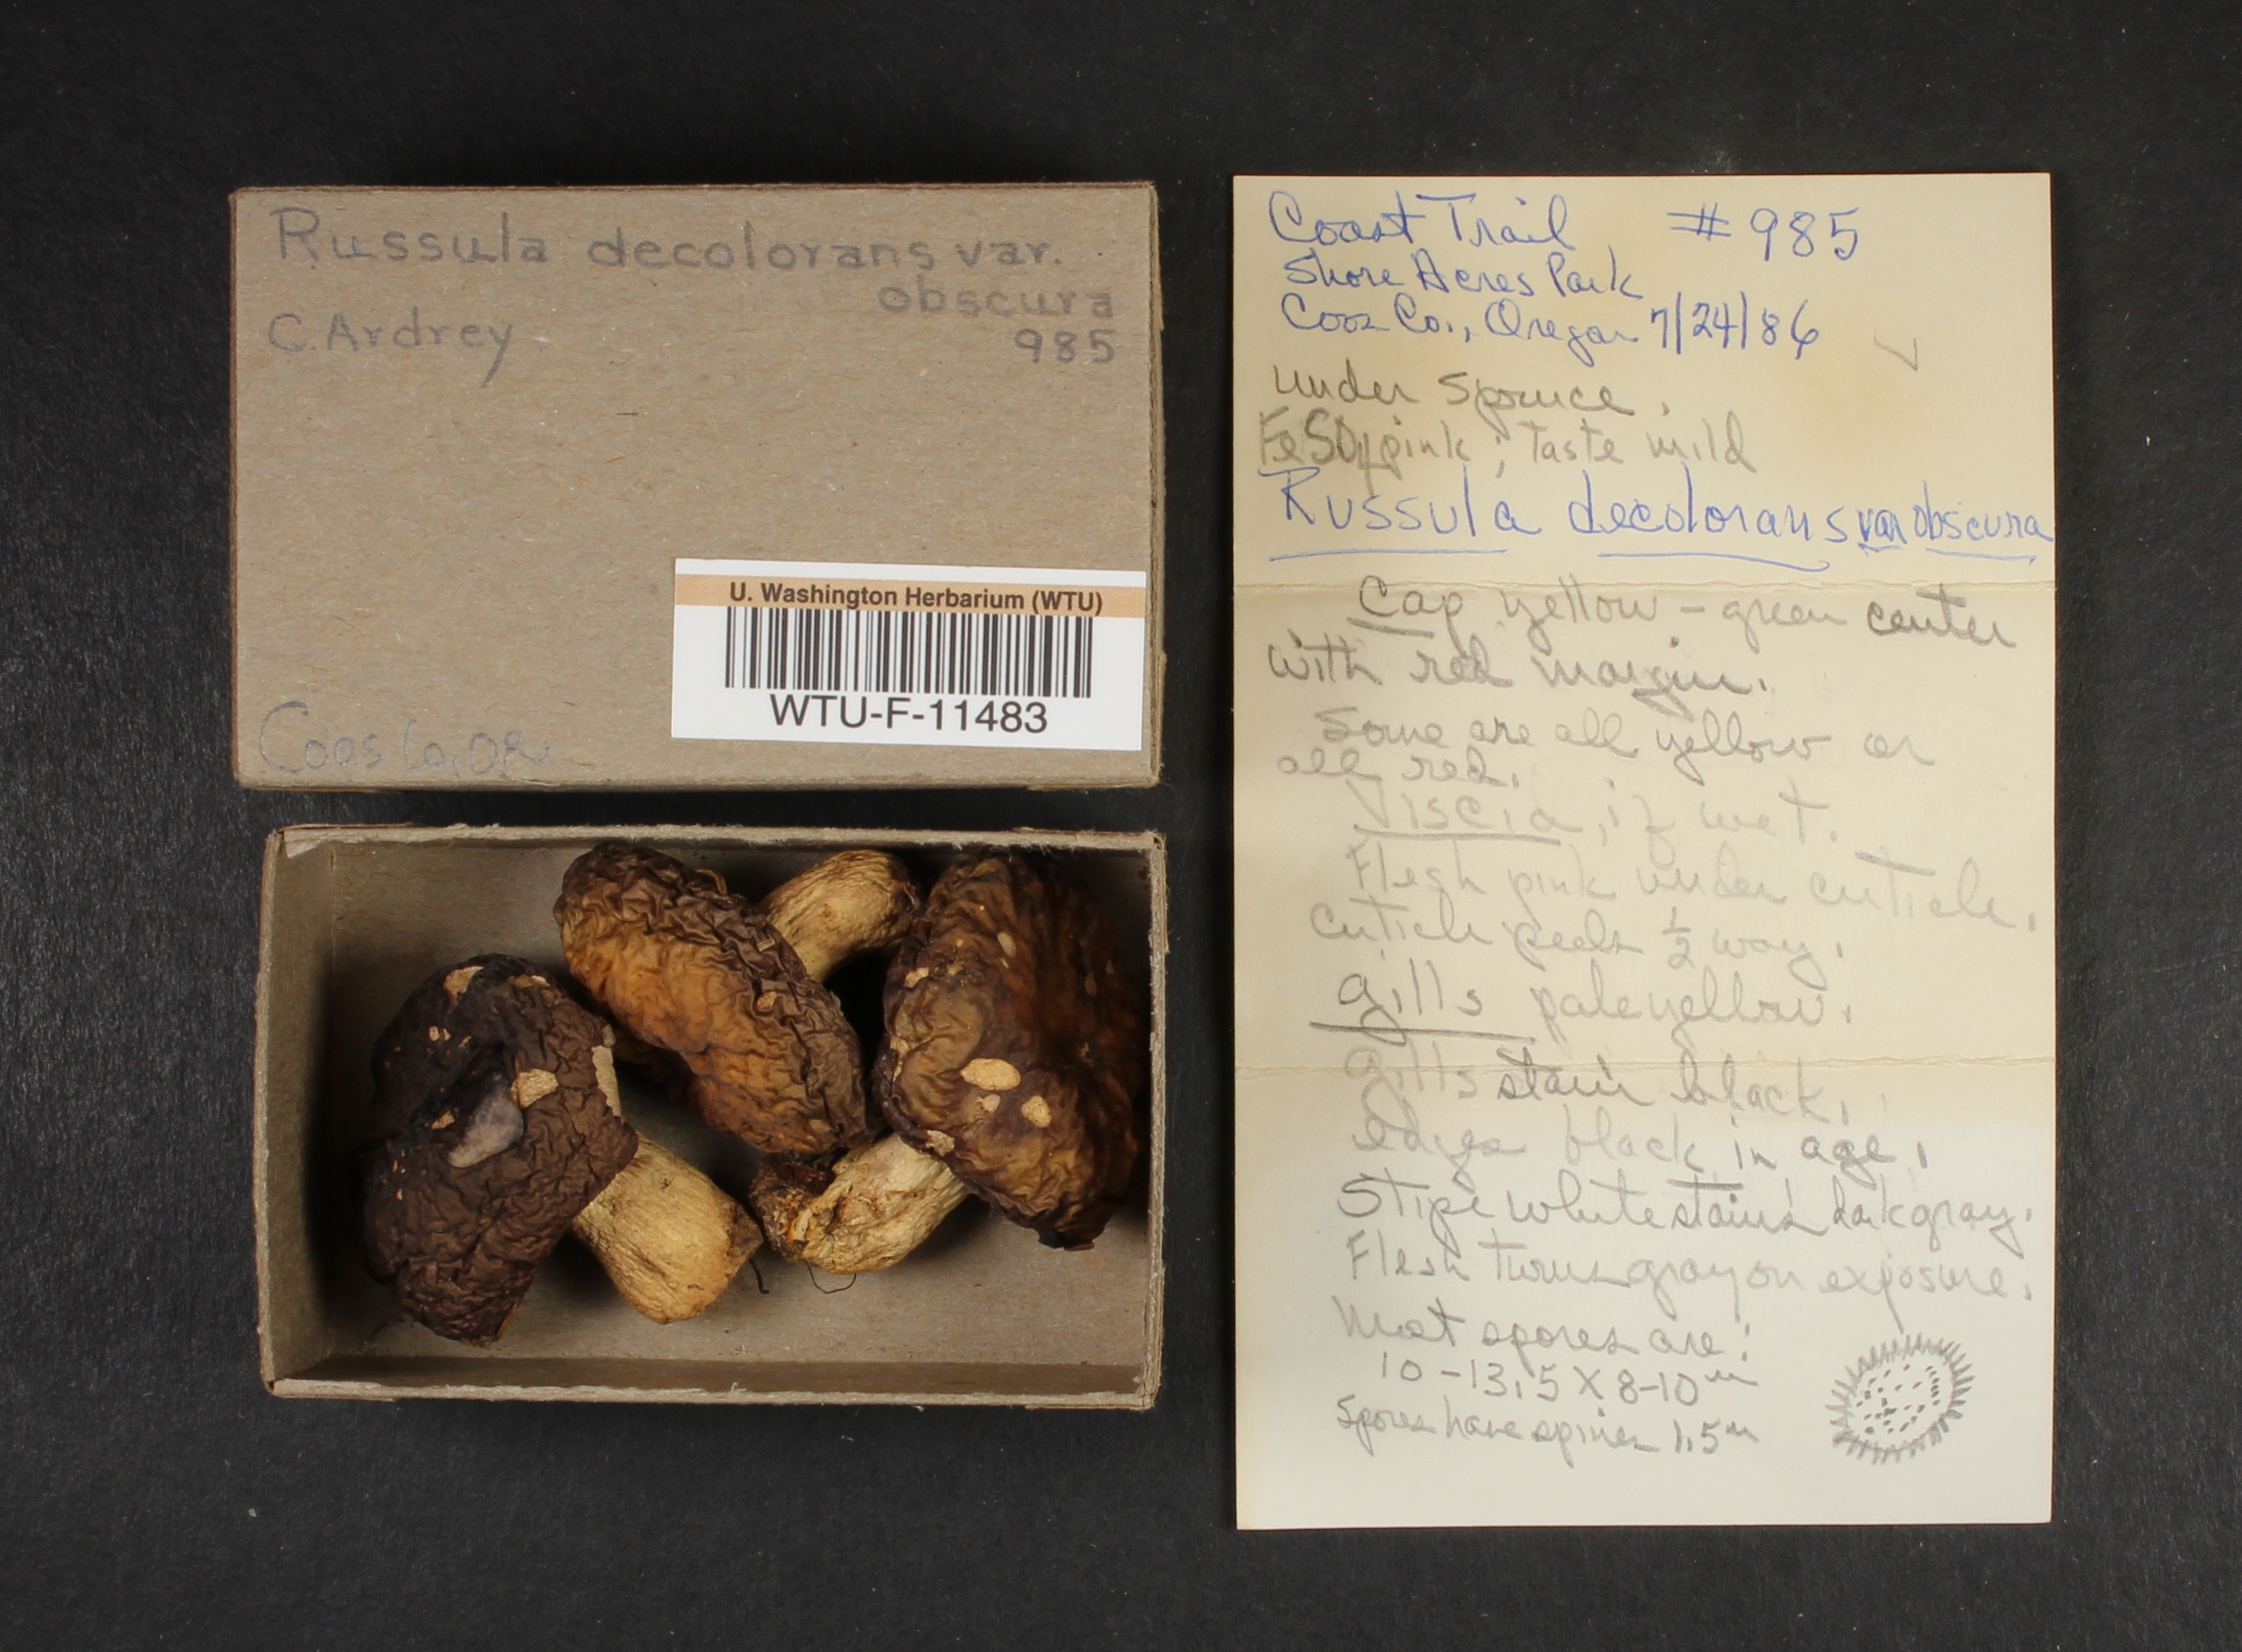 Russula decolorans var.
obscura
C. Ardrey
985
U. Washington Herbarium (WTU)
WTU-F-11483
Coos Co, OR.
Coast Trail # 985
Shore Acres Park
Coos Co., Oregon 7/24/86
under Spruce.
FeSO4 pink; taste mild
Russula decolorans var obscura
Cap yellow-green center
with red margin.
Some are all yellow or
all red.
Viscid, if wet.
Flesh pink under cuticle.
Cuticle peels 1/2 way.
Gills pale yellow.
Gills stain black.
Edges black in age.
Stipe white stains dark gray.
Flesh turns gray on exposure.
Most spores are:
10-13.5 X 8-10 m
Spores have spines 1.5 m